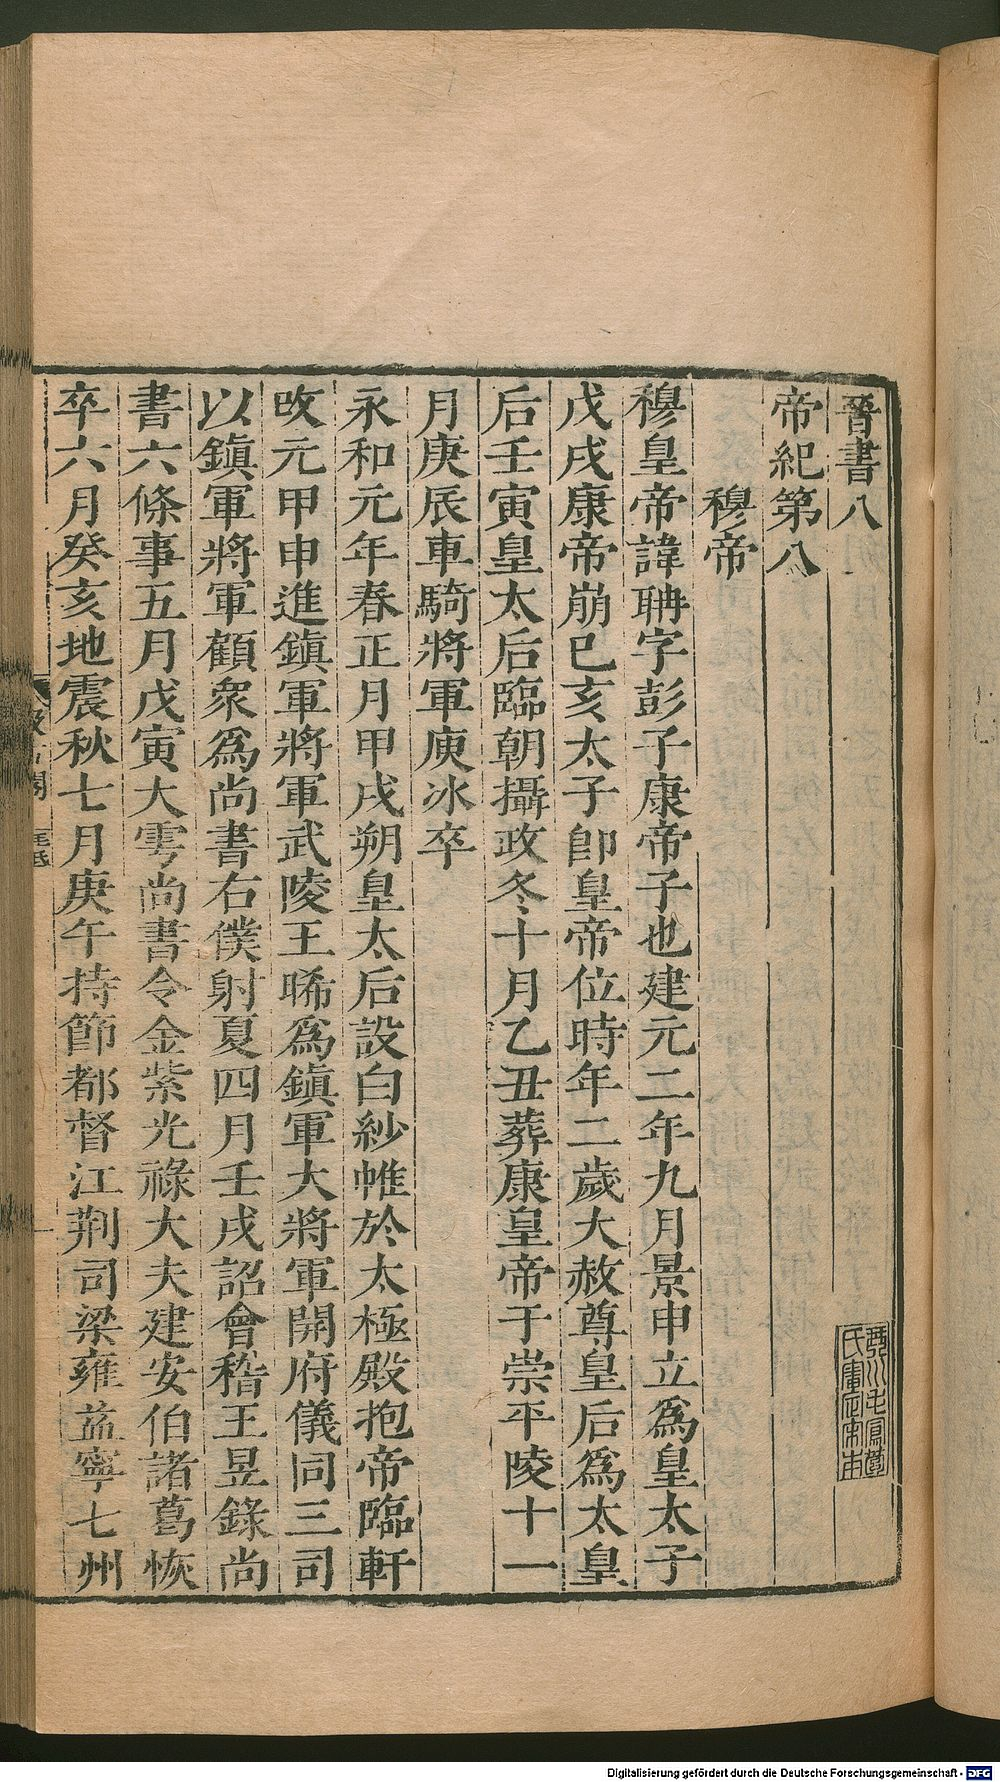 晉書八
帝紀第八
穆帝
穆皇帝諱聃字彭子康帝子也建元二年九月景申立爲皇太子
戊戌康帝崩已亥太子卽皇帝位時年二歲大赦尊皇后爲太皇
后壬寅皇太后臨朝攝政冬十月乙丑葬康皇帝于崇平陵十一
月庚辰車騎將軍庾冰卒
永和元年春正月甲戌朔皇太后設白紗帷於太極殿抱帝臨軒
改元甲申進鎭軍將軍武陵王晞爲鎭軍大將軍開府儀同三司
以鎭軍將軍顧衆爲尚書右僕射夏四月壬戌詔會稽王昱錄尚
書六條事五月戊寅大雩尚書令金紫光祿大夫建安伯諸葛恢
卒六月癸亥地震秋七月庚午持節都督江荆司梁雍益寧七州
Digitalisierung gefördert durch die Deutsche Forschungsgemeinschaft - DFG